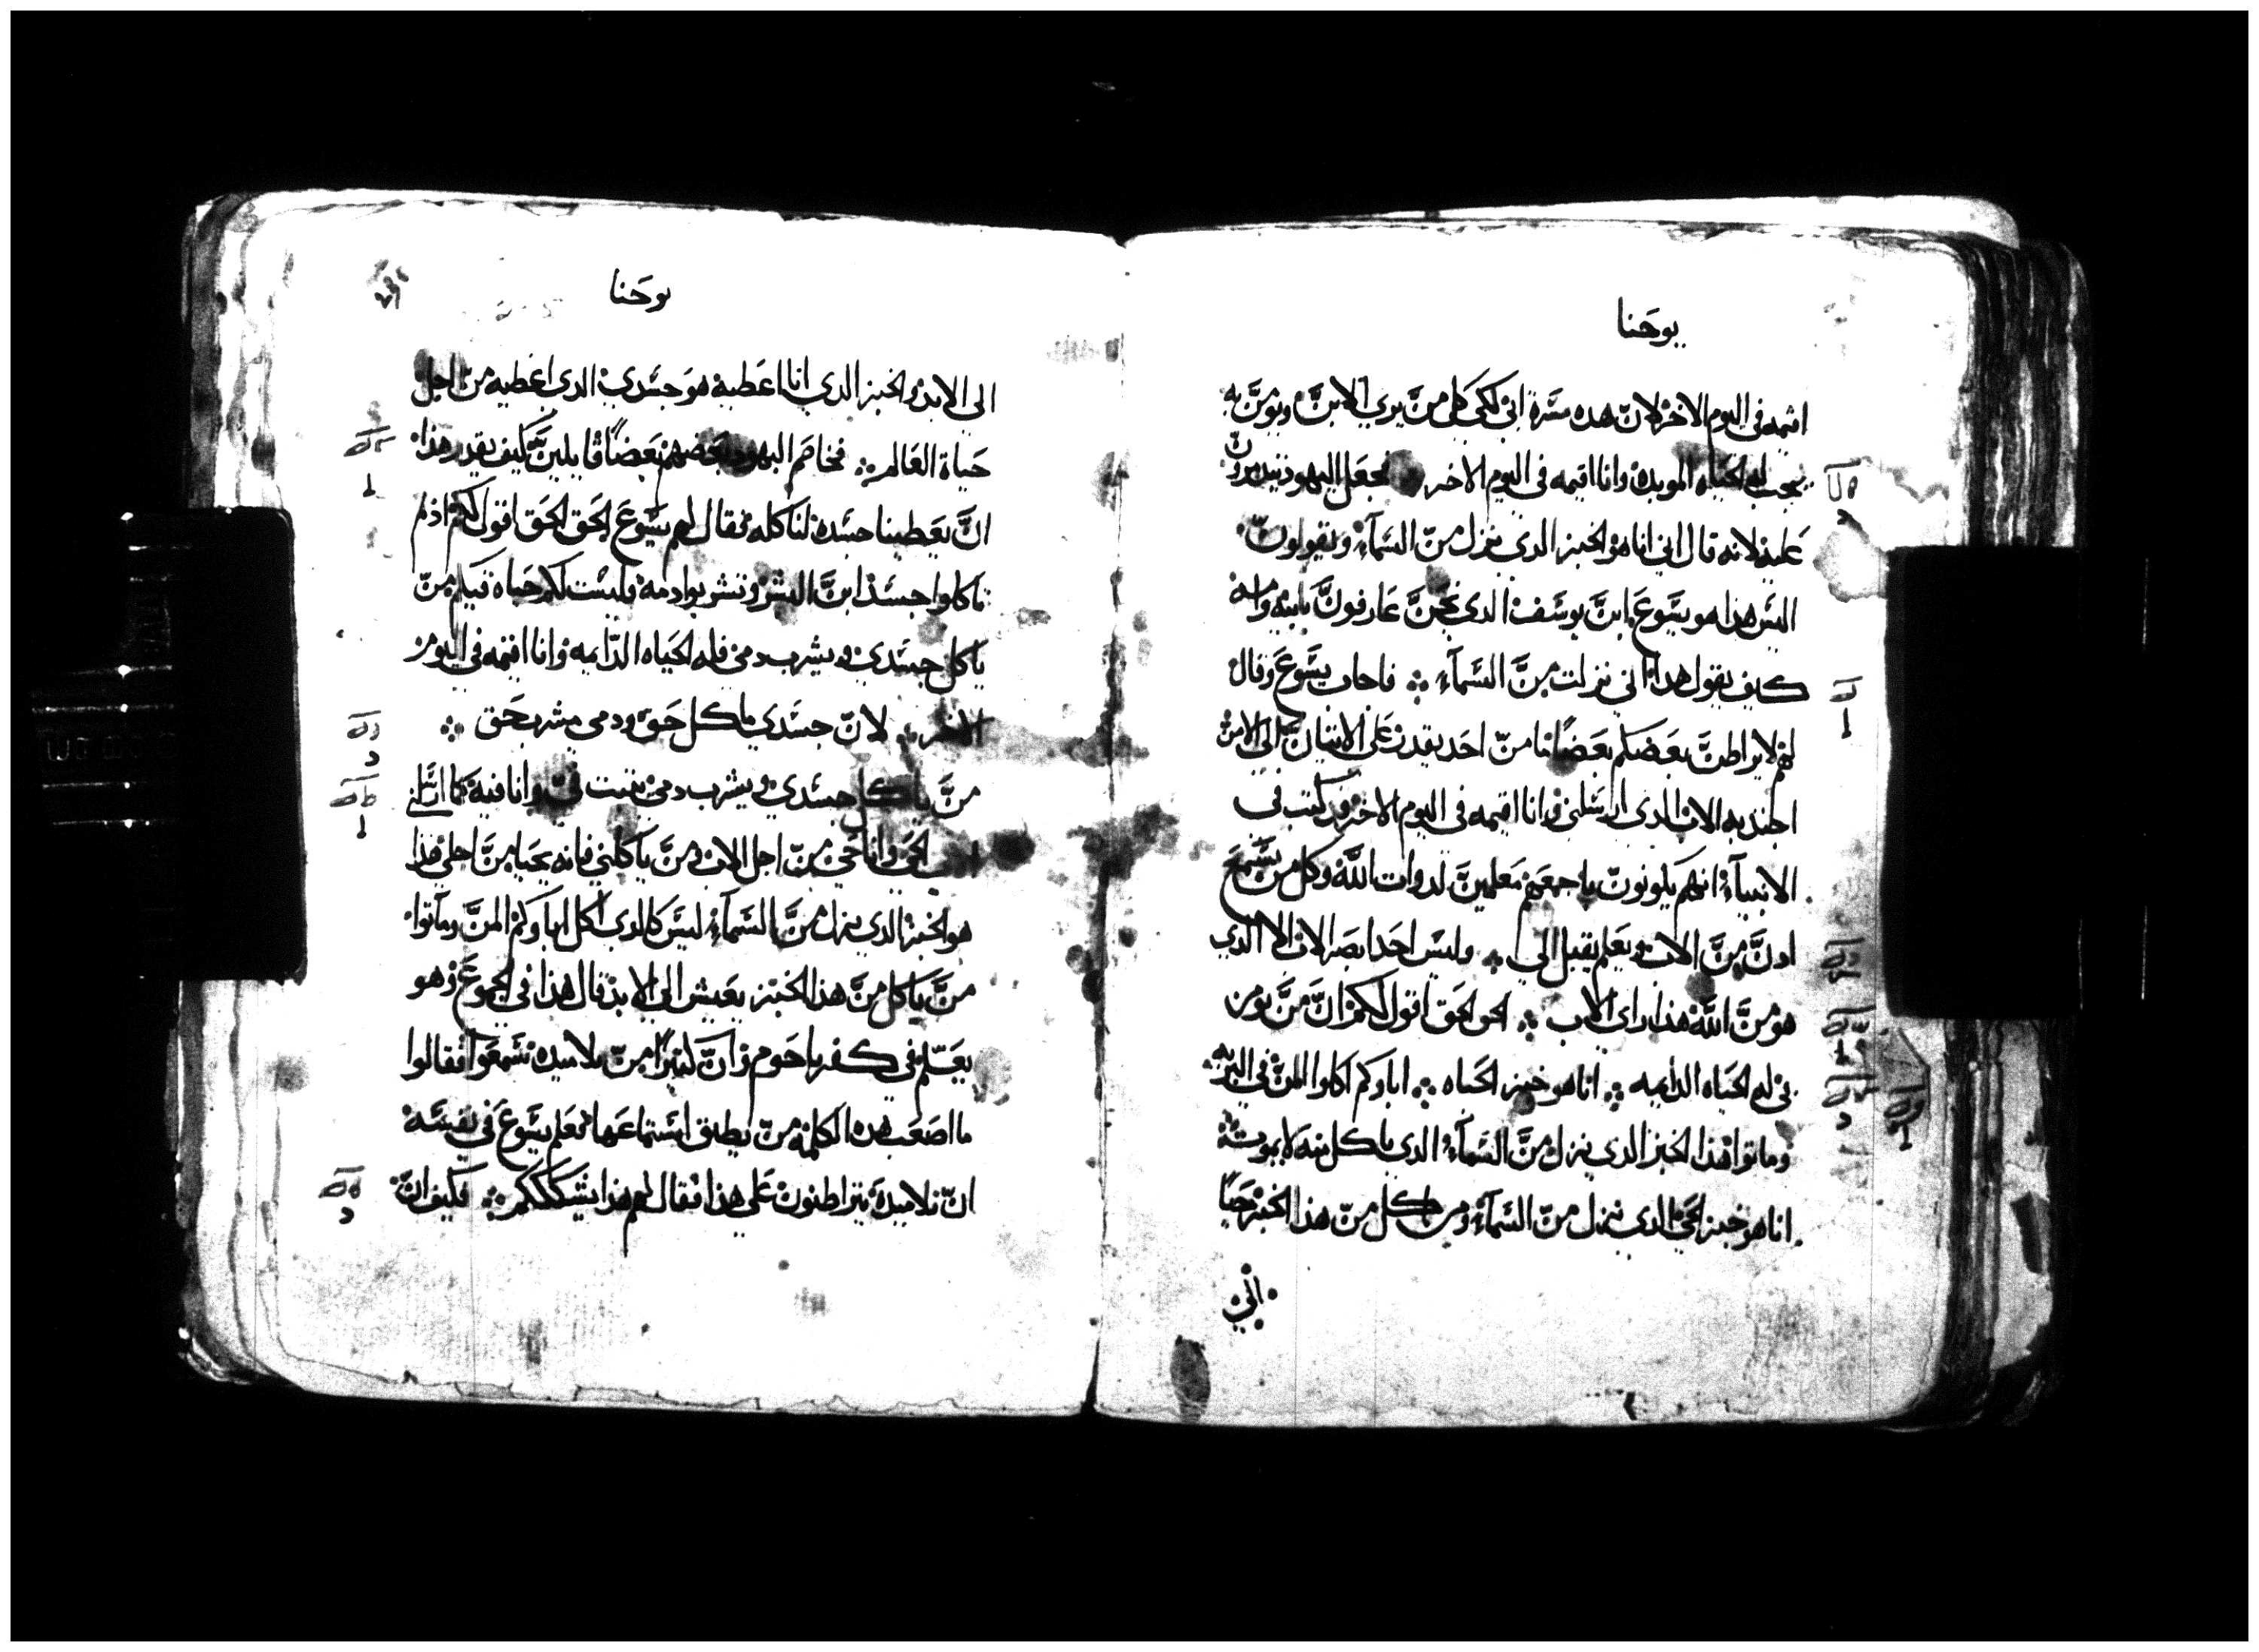 يوحنا
اقيمه في اليوم الاخر لان هده مسرة ابي لكي كل من يري الابن ويومن به
يجب له الحياه الموبده وانا اقيمه في اليوم الاخر فجعل اليهود يتدمرون
عليه لانه قال اني انا هو الخبز الدي نزل من السمآء ويقولون
اليس هذا هو يسوع ابن يوسف الدي نحن عارفون بابيه وامه
كيف يقول هدا اني نزلت من السمآء فاجاب يسوع وقال
لهم لا يراطن بعضكم بعضا ما من احد يقدر علي الاتيان الي الا من
اجتدبه الاب الدي ارسلني وانا اقيمه في اليوم الاخر قد كتب في
الانبيآء انهم يكونون باجمعهم معلمين لدوات الله وكل من يسمع
ادن من الاب ويعلم يقبل الي وليس احد ابصر الاب الا الدي
هو من الله هذا راي الاب الحق الحق اقول لكم ان من يومن
بي له الحياه الدايمه انا هو خبز الحياه اباوكم اكلوا المن في البريه
وماتوا هذا الخبز الدي نزل من السمآء الدي ياكل منه لا يموت
انا هو خبز الحي الدي نزل من السمآء ومن ياكل من هذا الخبز حيا
يوحنا
الي الابد والخبز الدي انا اعطيه هو جسدي الدي اعطيه من اجل
حياة العالم فخاصم اليهود بعضهم بعضًا قايلين كيف يقدر هذا
ان يعطينا جسده لناكله فقال لهم يسوع الحق الحق اقول لكم اذ لم
تاكلوا جسد ابن البشر وتشربوا دمه فليست لكم حياه فيكم من
ياكل جسدي ويشرب دمي فله الحياه الدايمه وانا اقيمه في اليوم
الاخر لان جسدي ماكل حق ودمي مشرب حق
من ياكل جسدي ويشرب دمي يتبت في وانا فيه كما ارسلني
الاب الحي وانا حي من اجل الاب ومن ياكلني فانه يحيا من اجلي هذا
هو الخبز الدي نزل من السمآء ليس كالدي اكل اباوكم المن وماتوا
من ياكل من هذا الخبز يعيش الي الابد قال هذا في المجموع وهو
يعلم في كفرناحوم وان كثيرًا من تلاميده سمعوا فقالوا
ما اصعب هده الكلمه من يطيق استماعها فعلم يسوع في نفسه
ان تلاميده يتراطنون علي هذا فقال لهم هذا يشكككم فكيف ان